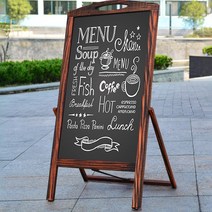 MENU
Soup
of the day
MENUS
FRESH
Fish
Coffee
Breakfast
HOT
ESPRESSO
CAPPUCCINO
AMERICANO
Pasta Pizza Panini
Lunch